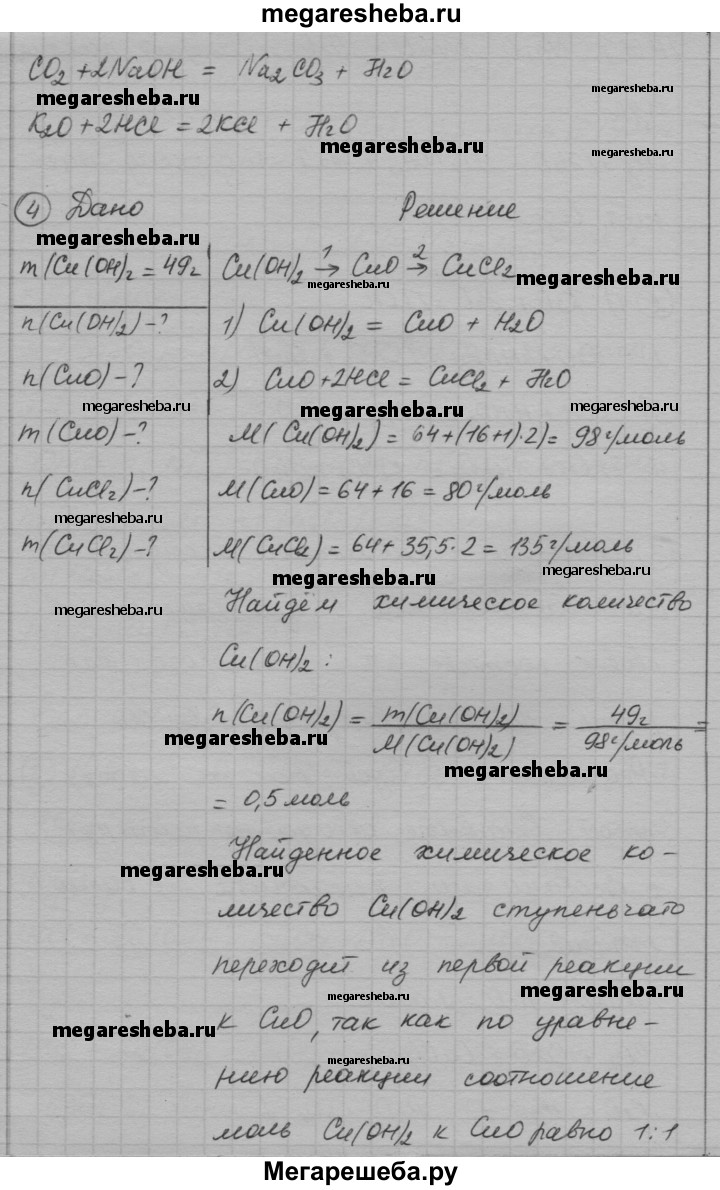 megaresheba.ru
CO2 + 2NaOH = Na2CO3 + H2O
megaresheba.ru megaresheba.ru
K2O + 2HCl = 2KCl + H2O
megaresheba.ru
④ Дано Решение
megaresheba.ru
m(Cu(OH)2 = 49г Cu(OH)2 →1 CuO →2 CuCl2
megaresheba.ru megaresheba.ru
n(Cu(OH)2) - ? 1) Cu(OH)2 = CuO + H2O
n(CuO) - ? 2) CuO + 2HCl = CuCl2 + H2O
megaresheba.ru megaresheba.ru megaresheba.ru
m(CuO) - ? M(Cu(OH)2) = 64+(16+1)·2) = 98 г/моль
n(CuCl2) - ? M(CuO) = 64 + 16 = 80 г/моль
megaresheba.ru
m(CuCl2) - ? M(CuCl2) = 64 + 35,5·2 = 135 г/моль
megaresheba.ru megaresheba.ru
megaresheba.ru Найдём химическое количество
Cu(OH)2 :
n(Cu(OH)2) = m(Cu(OH)2) / M(Cu(OH)2) = 49г / 98 г/моль =
megaresheba.ru megaresheba.ru
= 0,5 моль
Найденное химическое ко-
megaresheba.ru
личество Cu(OH)2 ступеньчато
переходит из первой реакции
megaresheba.ru megaresheba.ru
к CuO, так как по уравне-
megaresheba.ru megaresheba.ru
нию реакции соотношение
megaresheba.ru
моль Cu(OH)2 к CuO равно 1:1
Мегарешеба.ру